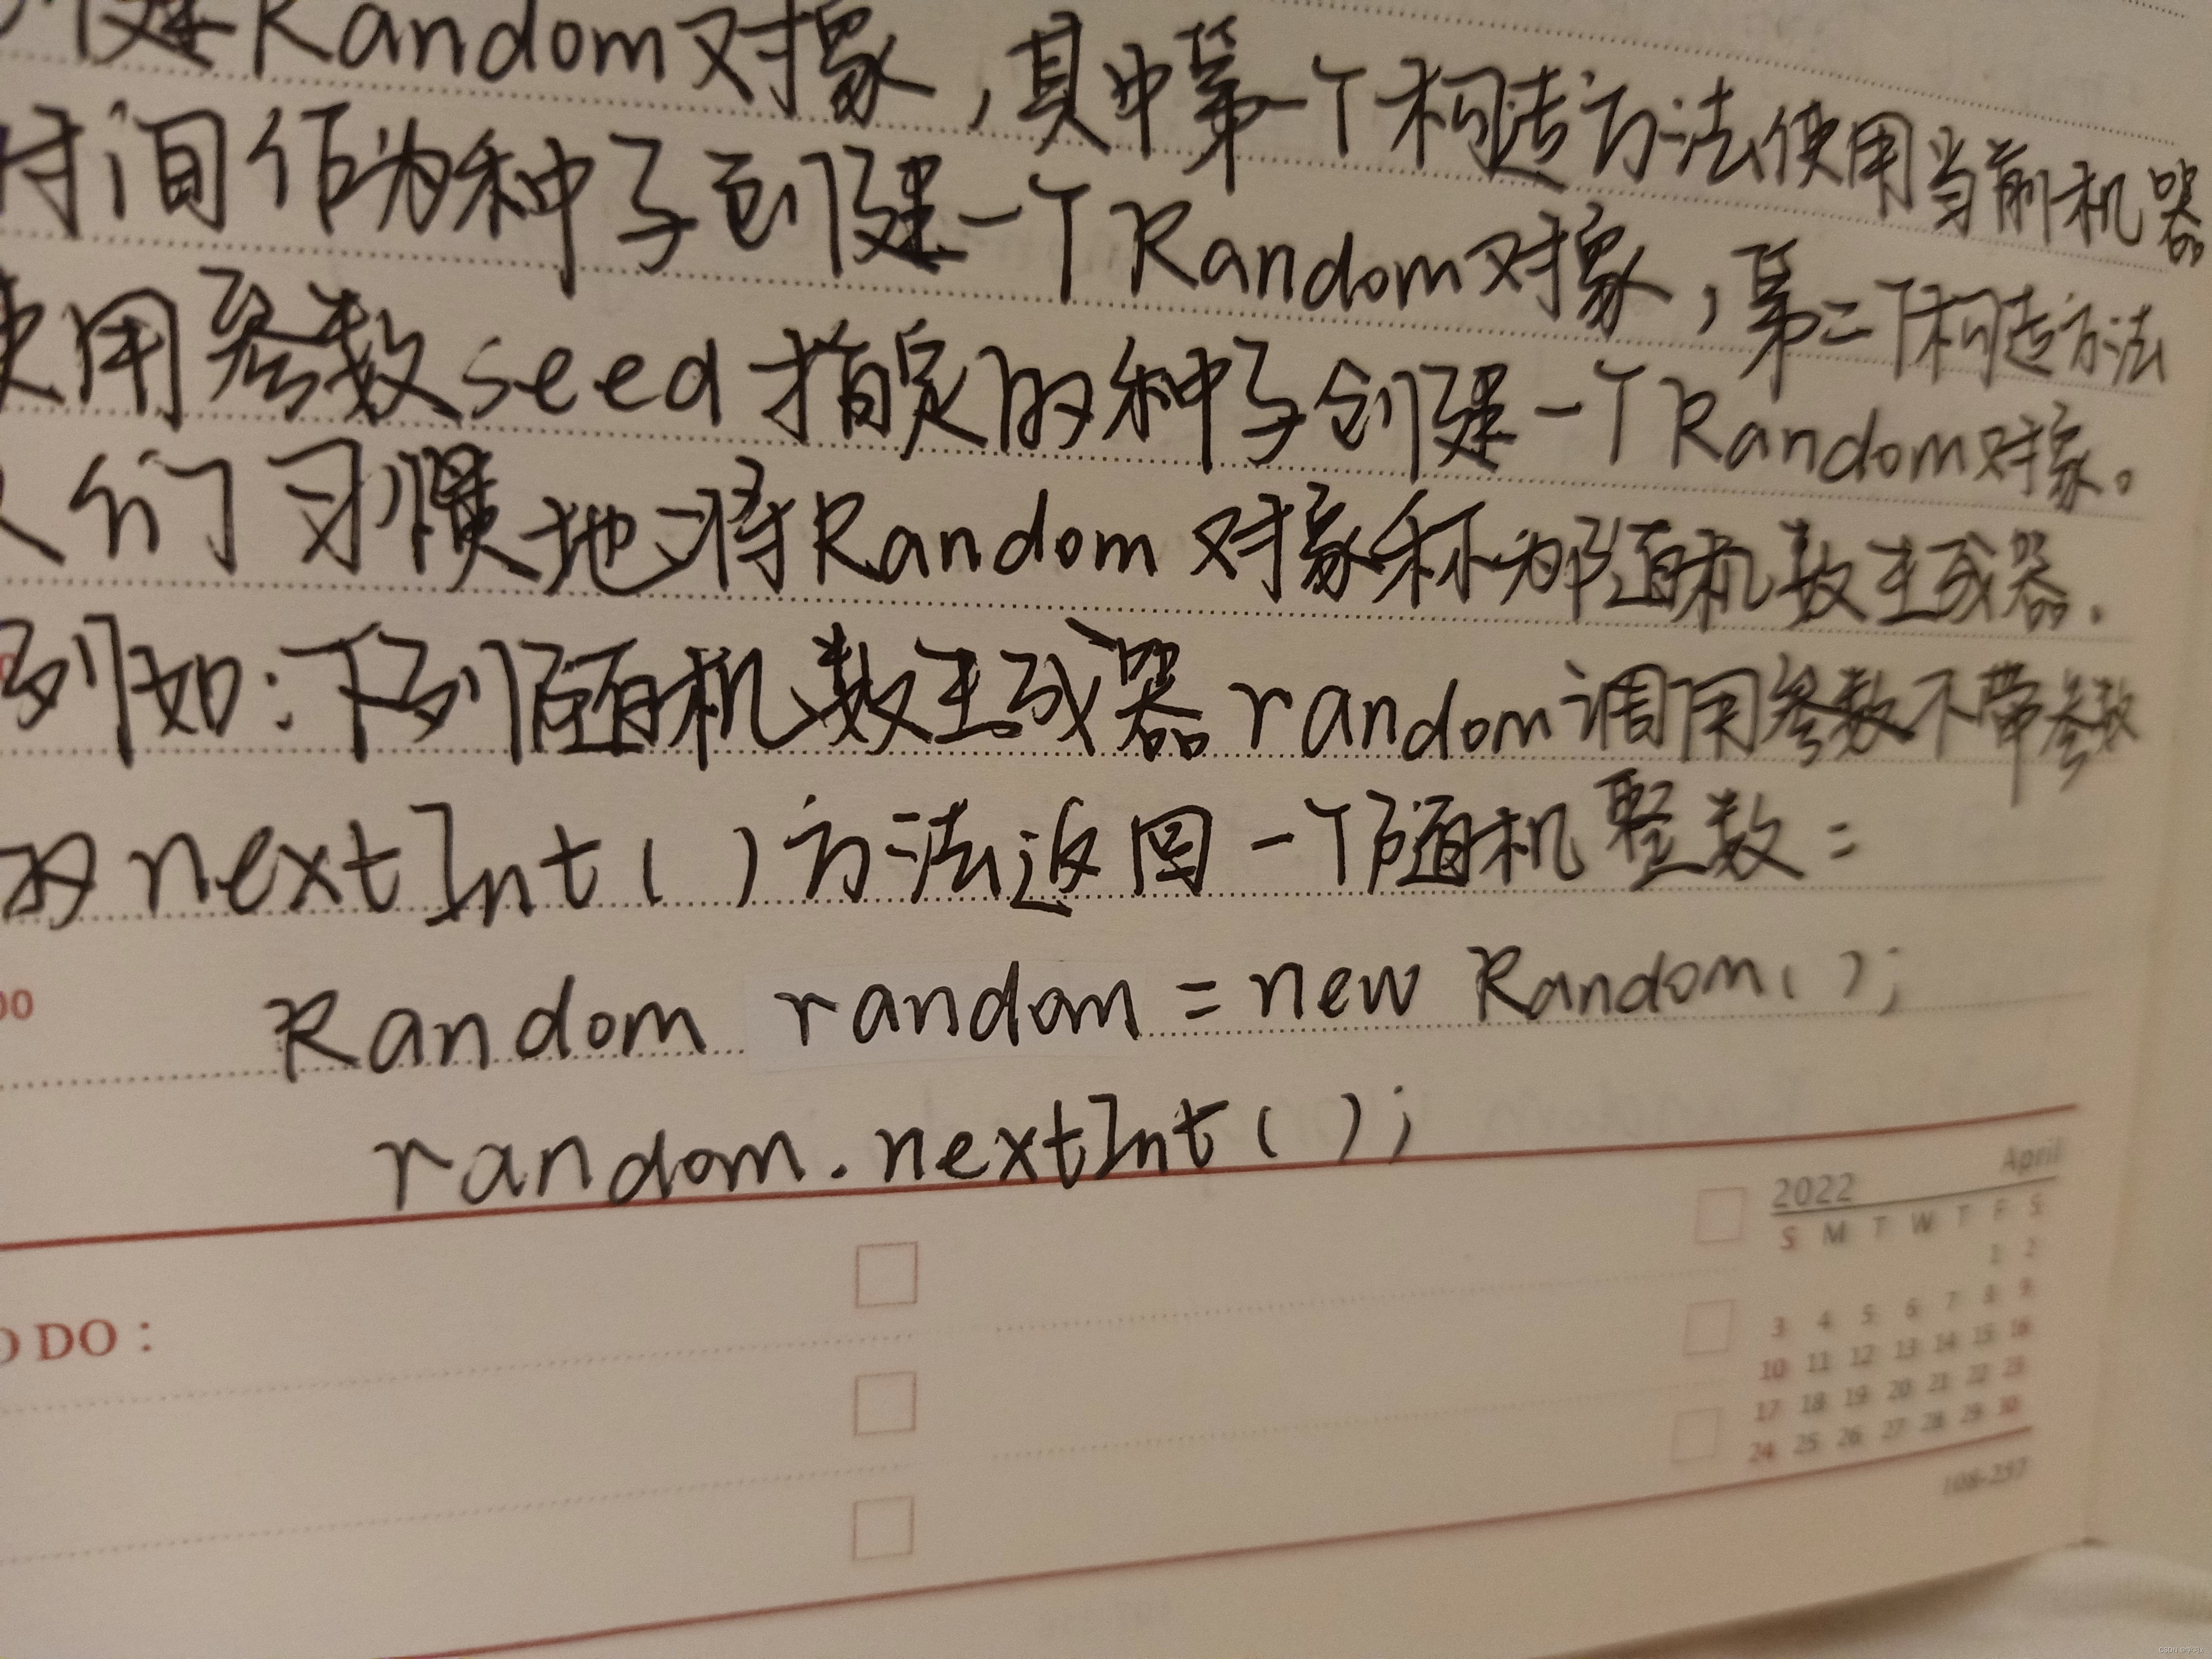 创建Random对象，其中第一个构造方法使用当前机器
时间作为种子创建一个Random对象，第二个构造方法
使用参数seed指定的种子创建一个Random对象。
人们习惯地将Random对象称为随机数生成器.
例如:下列随机数生成器random调用参数不带参数
的nextInt()方法返回一个随机整数=
Random random = new Random();
random.nextInt();
00
O DO :
2022 April
S M T W T F S
1 2
3 4 5 6 7 8 9
10 11 12 13 14 15 16
17 18 19 20 21 22 23
24 25 26 27 28 29 30
108-257